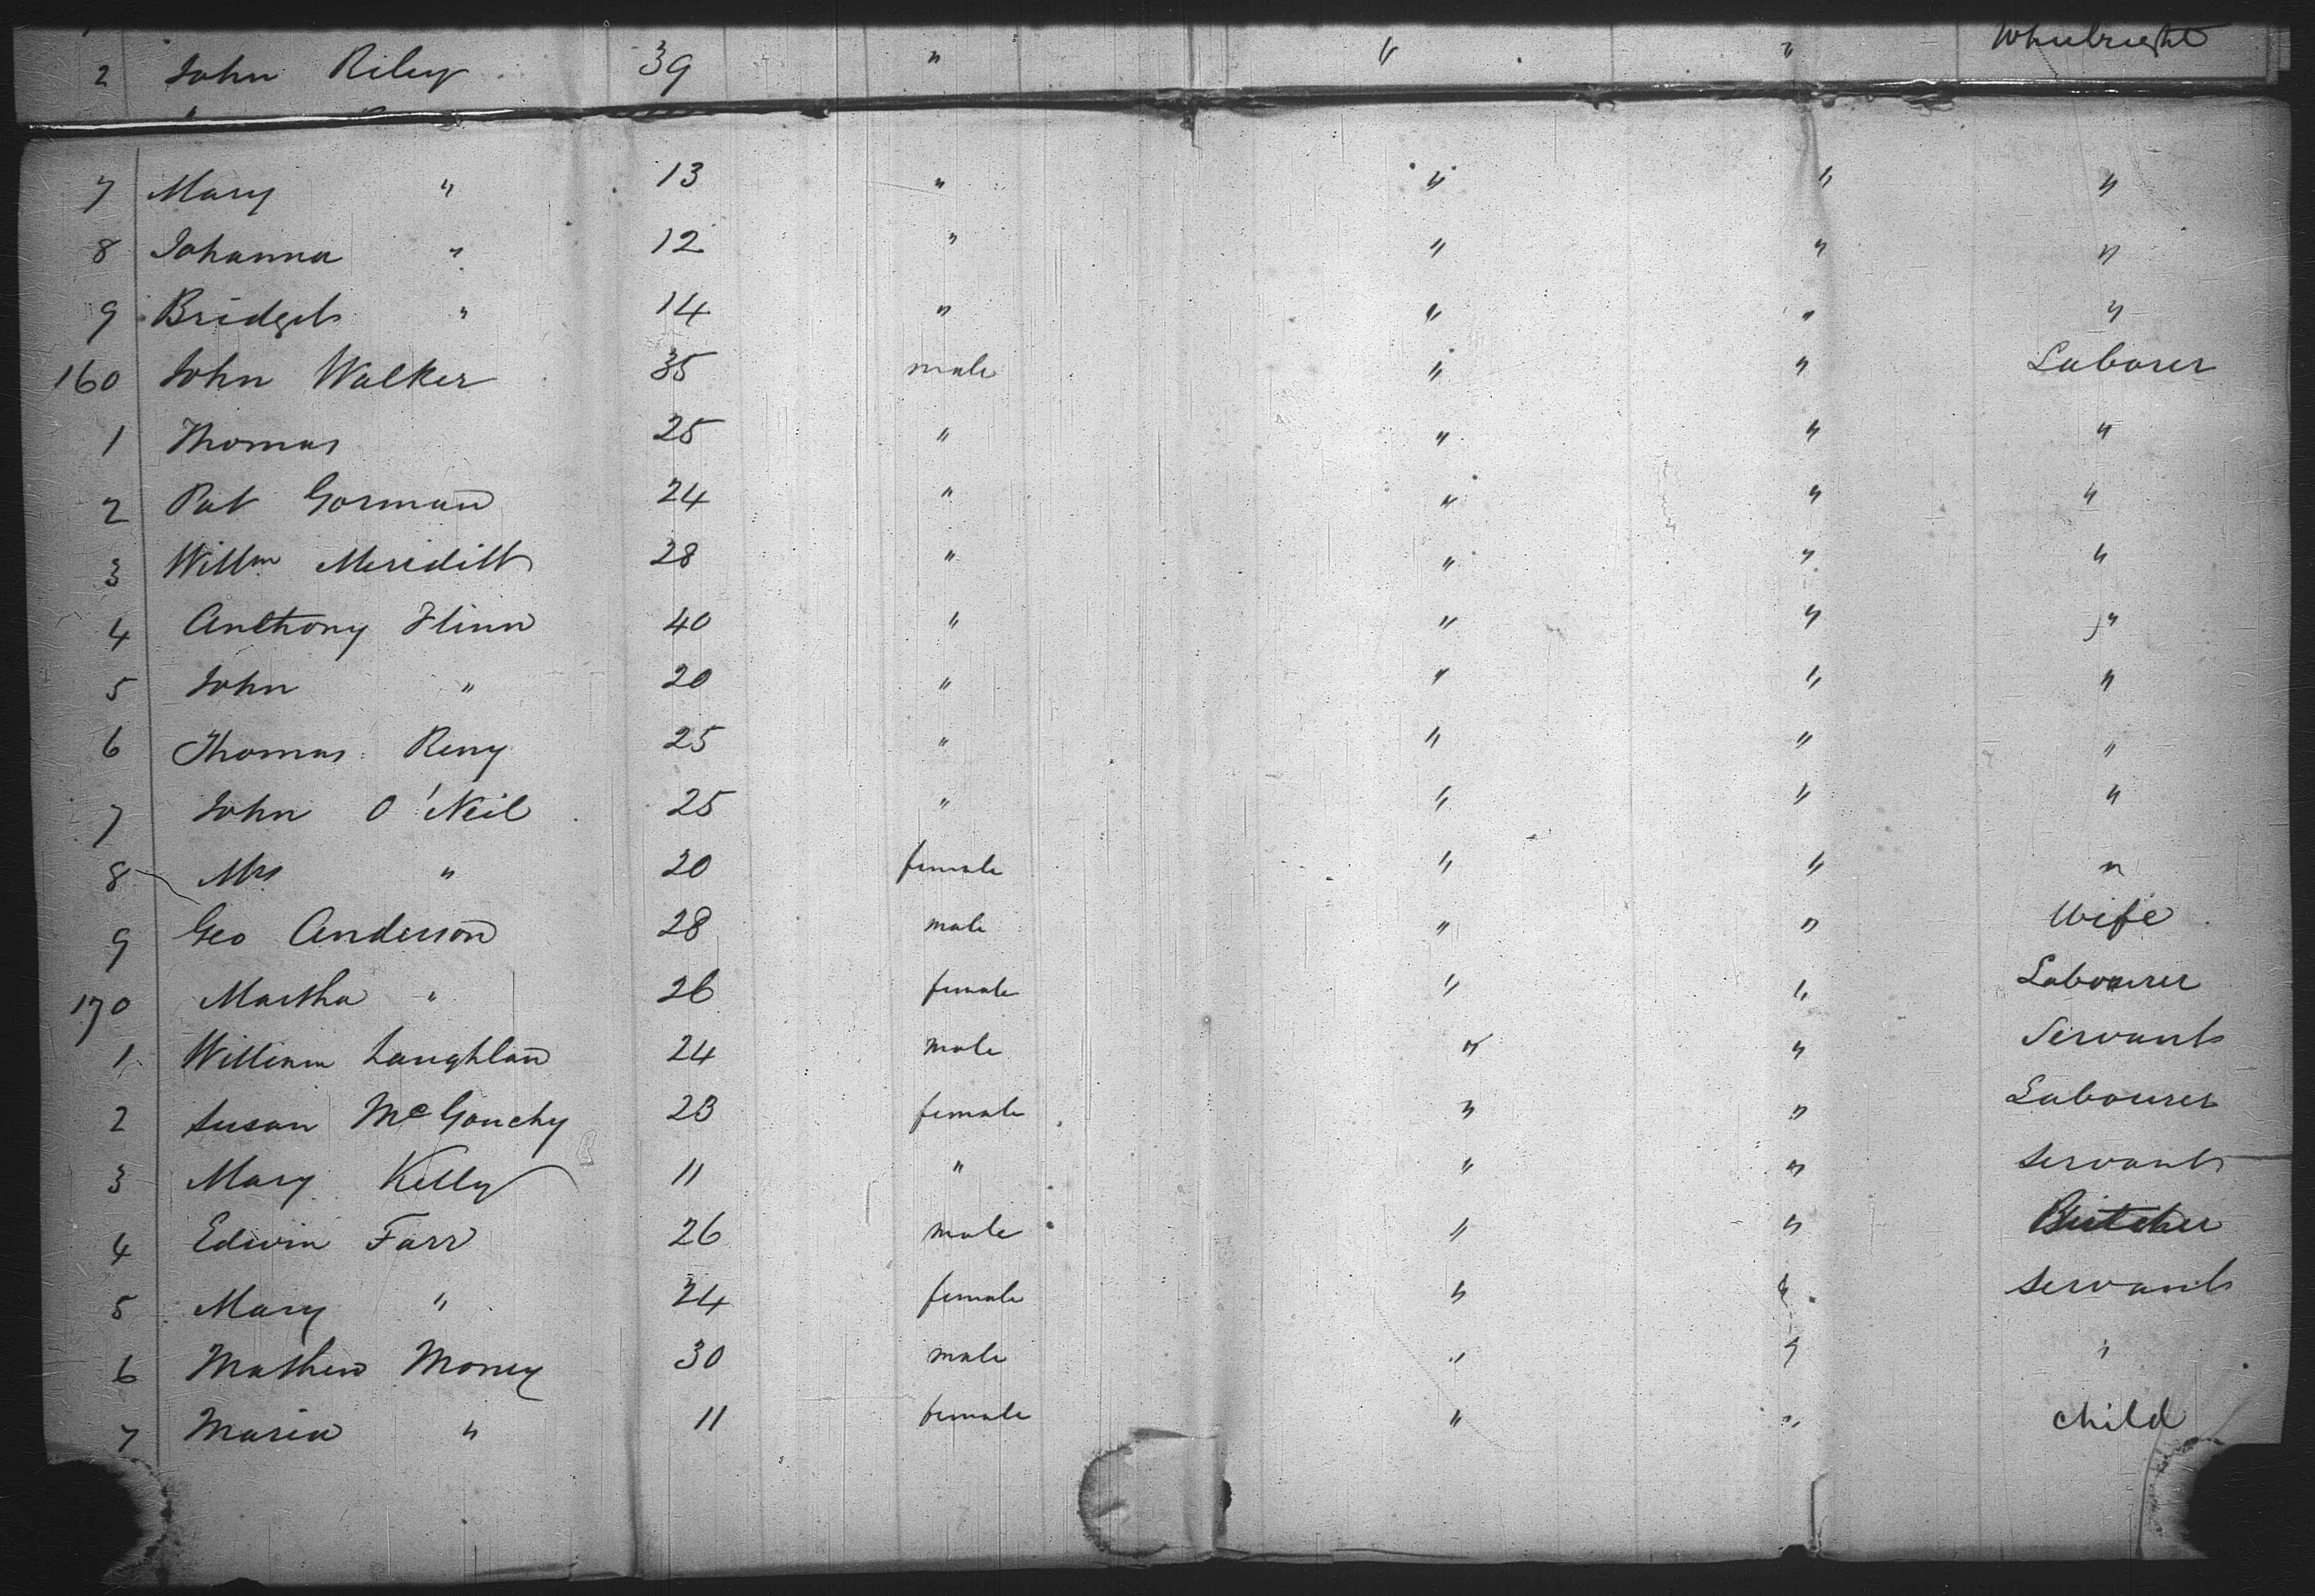 2 John Riley 39 " " " Whielright
7 Mary " 13 " " " "
8 Johanna " 12 " " " "
9 Bridget " 14 " " " "
160 John Walker 35 male " " Laborer
1 Thomas 25 " " " "
2 Pat Gorman 24 " " " "
3 Willm Meridith 28 " " " "
4 Anthony Flinn 40 " " " "
5 John " 20 " " " "
6 Thomas Reny 25 " " " "
7 John O'Neil 25 " " " "
8 Mrs " 20 female " " "
9 Geo Anderson 28 male " " Wife
170 Martha " 26 female " " Labourer
1 William Laughlan 24 male " " Servant
2 Susan McGouchy 23 female " " Labourer
3 Mary Kelly 11 " " " Servant
4 Edwin Farr 26 male " " Butcher
5 Mary " 24 female " " Servant
6 Mathew Money 30 male " " "
7 Maria " 11 female " " child